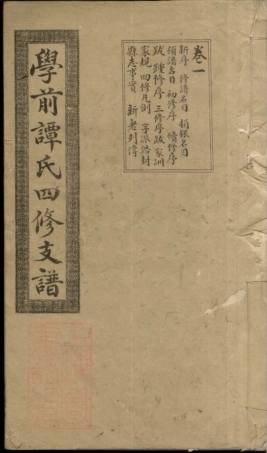 卷一
新序 修譜名目 捐銀名目
領譜名目 初修序 續修序
跋 踵修序 三修序跋 家訓
家規 四修凡例 字派誥封
縣志事實 新老列傳
學前譚氏四修支譜